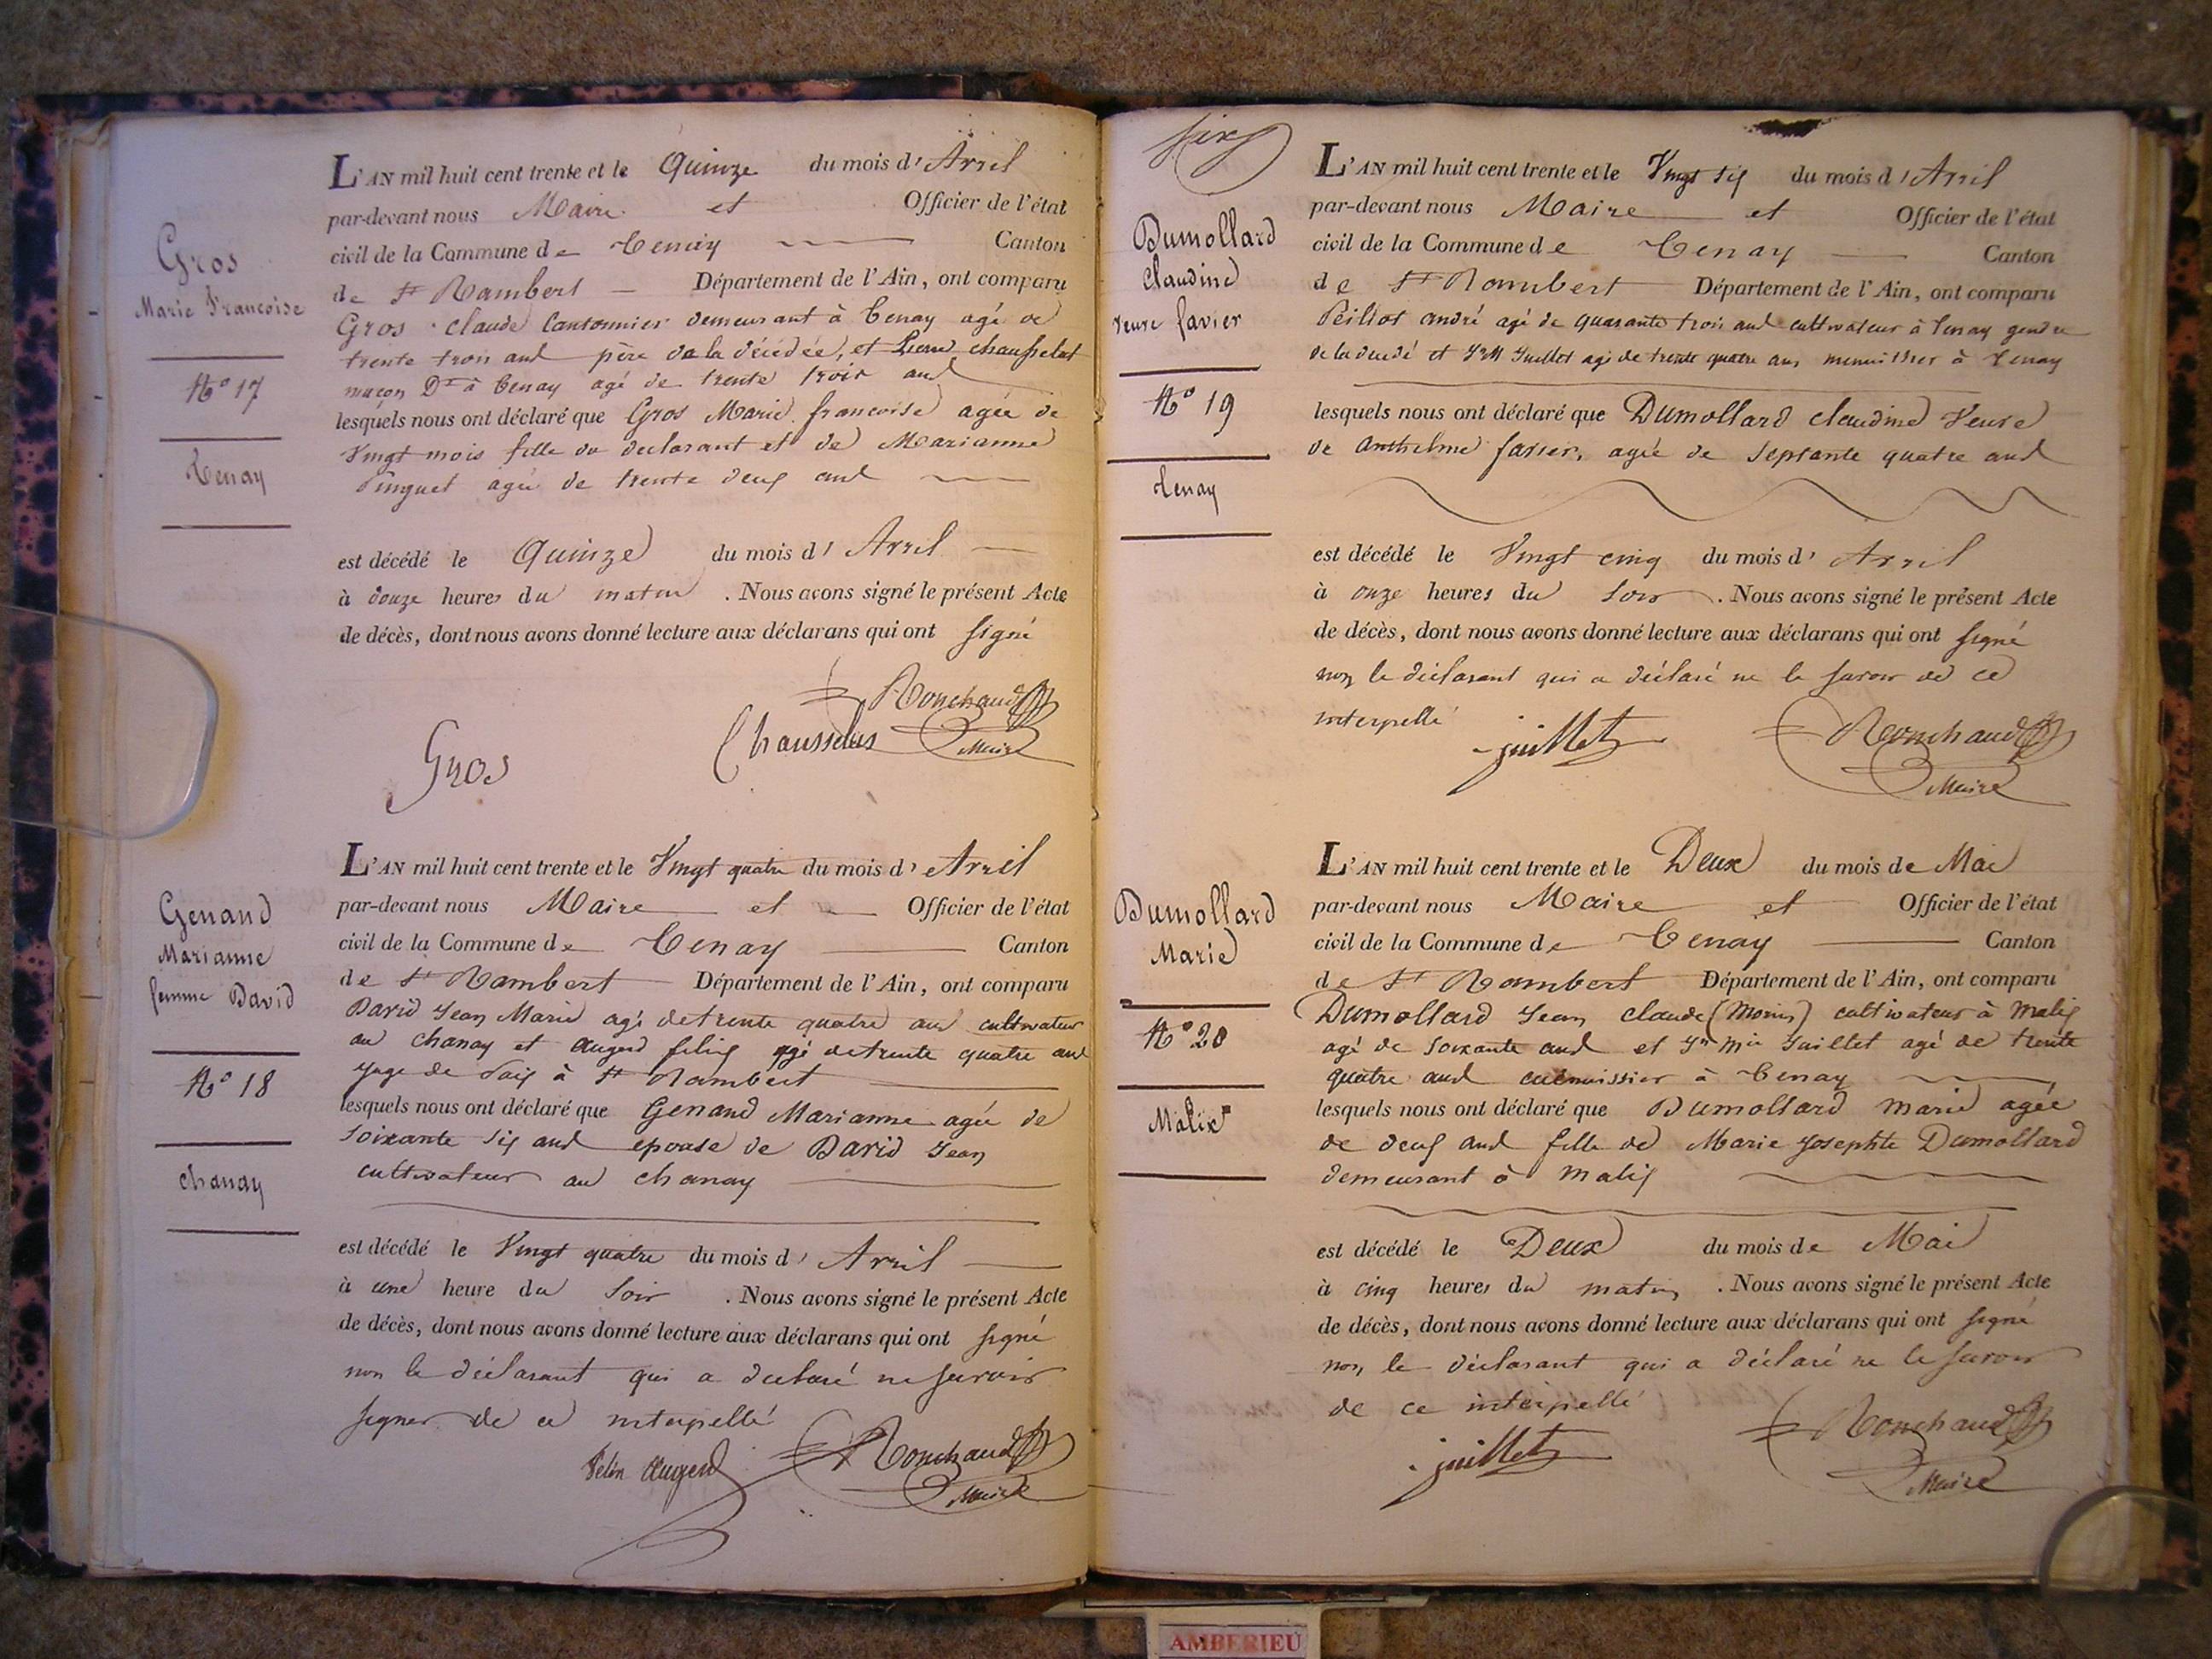 Gros
Marie Francoise
N° 17
Tenay
L'AN mil huit cent trente et le Quinze du mois d' Avril
par-devant nous Maire et Officier de l'état
civil de la Commune de Tenay Canton
de St Rambert Département de l'Ain, ont comparu
Gros claude Cantonnier demeurant à Tenay agé de
trente trois ans père de la décédée, et Pierre chausselat
maçon Dt à Tenay agé de trente trois ans
lesquels nous ont déclaré que Gros Marie francoise agée de
Vingt mois fille du declarant et de Marianne
Pinguet agée de trente deux ans
est décédé le Quinze du mois d' Avril
à douze heures du matin . Nous avons signé le présent Acte
de décès, dont nous avons donné lecture aux déclarans qui ont signé
Ronchaud
Chausselas Maire
Gros
Genand
Marianne
femme David
N° 18
chanay
L'AN mil huit cent trente et le Vingt quatre du mois d' Avril
par-devant nous Maire et Officier de l'état
civil de la Commune de Tenay Canton
de St Rambert Département de l'Ain, ont comparu
David Jean Marie agé de trente quatre ans cultivateur
au chanay et Augerd félix agé de trente quatre ans
juge de Paix à St Rambert
lesquels nous ont déclaré que Genand Marianne agée de
soixante six ans epouse de David Jean
cultivateur au chanay
est décédé le Vingt quatre du mois d' Avril
à une heure du Soir . Nous avons signé le présent Acte
de décès, dont nous avons donné lecture aux déclarans qui ont signé
non le déclarant qui a declaré ne savoir
signer de ce interpellé
felix Augerd Ronchaud
Maire
six
Dumollard
Claudine
veuve favier
N° 19
tenay
L'AN mil huit cent trente et le Vingt six du mois d' Avril
par-devant nous Maire et Officier de l'état
civil de la Commune de Tenay Canton
de St Rambert Département de l'Ain, ont comparu
Peillot andré agé de quarante trois ans cultivateur à Tenay gendre
de la decedé et Jn M Juillet agé de trente quatre ans menuisier à Tenay
lesquels nous ont déclaré que Dumollard claudine Veuve
de anthelme favier, agée de septante quatre ans
est décédé le Vingt cinq du mois d' Avril
à onze heures du Soir . Nous avons signé le présent Acte
de décès, dont nous avons donné lecture aux déclarans qui ont signé
non le déclarant qui a déclaré ne le savoir de ce
interpellé
juillet Ronchaud
Maire
Dumollard
Marie
N° 20
Malix
L'AN mil huit cent trente et le Deux du mois de Mai
par-devant nous Maire et Officier de l'état
civil de la Commune de Tenay Canton
de St Rambert Département de l'Ain, ont comparu
Dumollard Jean claude cultivateur à Malix
agé de soixante ans et Jn Mie Juillet agé de trente
quatre ans menuissier à Tenay
lesquels nous ont déclaré que Dumollard marie agée
de deux ans fille de Marie Josephte Dumollard
demeurant à Malix
est décédé le Deux du mois de Mai
à cinq heures du matin . Nous avons signé le présent Acte
de décès, dont nous avons donné lecture aux déclarans qui ont signé
non le déclarant qui a déclaré ne le savoir
de ce interpellé
juillet Ronchaud
Maire
AMBERIEU